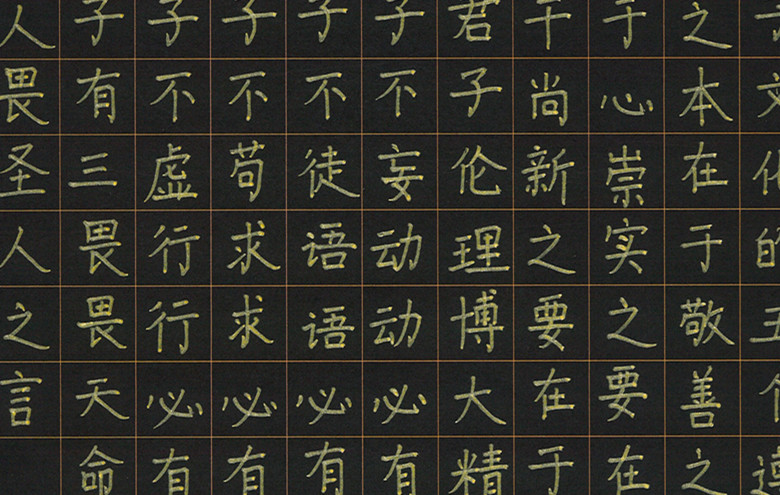 文化的五
之本在于敬善之
于心崇实之要在
干尚新之要在于
君子伦理博大精
子不妄动动必有
子不徒语语必有
子不苟求求必有
子不虚行行必有
子有三畏畏天命
人畏圣人之言